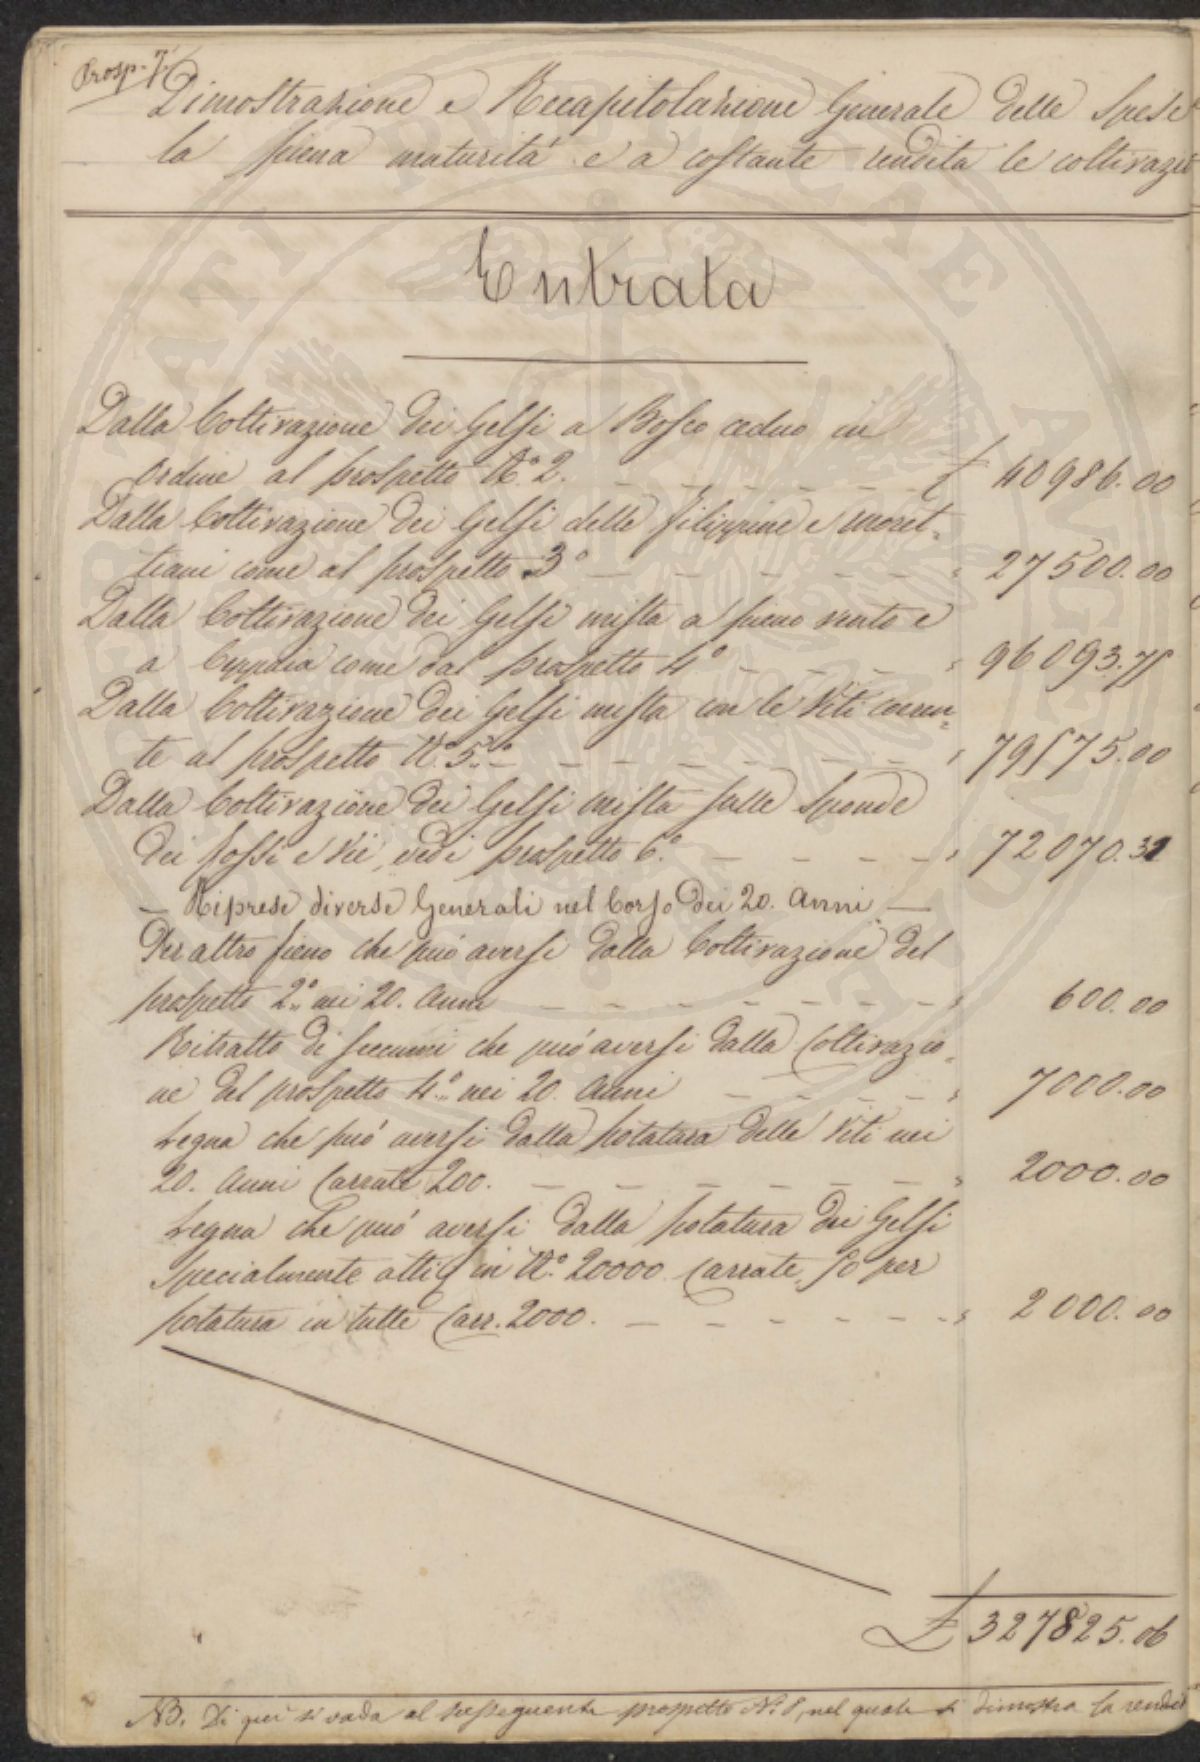 Prosp. 7.
Dimostrazione e Recapitolazione Generale delle Spese
la piena maturità e a costante rendita le coltivazio
Entrata
Dalla Coltivazione dei Gelsi a Bosco ceduo in
ordine al prospetto N.° 2. £ 40986.00
Dalla Coltivazione dei Gelsi delle filippine e moret-
tiani come al prospetto 3° 27500.00
Dalla Coltivazione dei Gelsi mista a pieno vento e
a Ceppaia come dal prospetto 4° 96093.75
Dalla Coltivazione dei Gelsi mista con le Viti coeren-
te al prospetto N.° 5.° 79575.00
Dalla Coltivazione dei Gelsi mista sulle Sponde
dei fossi e Vie, vedi prospetto 6.° 72070.31
— Riprese diverse Generali nel Corso dei 20. Anni —
Per altro fieno che può aversi dalla Coltivazione del
prospetto 2.° nei 20. Anni 600.00
Ritratto di seccumi che può aversi dalla Coltivazio-
ne del prospetto 4.° nei 20. Anni 7000.00
Legna che può aversi dalla potatura delle Viti nei
20. Anni Carrate 200. 2000.00
Legna che può aversi dalla potatura dei Gelsi
Specialmente alti in N.° 20000 Carrate 50 per
potatura in tutte Carr. 2000. 2000.00
£ 327825.06
NB. Di qui si vada al susseguente prospetto N.° 8, nel quale si dimostra la rendit